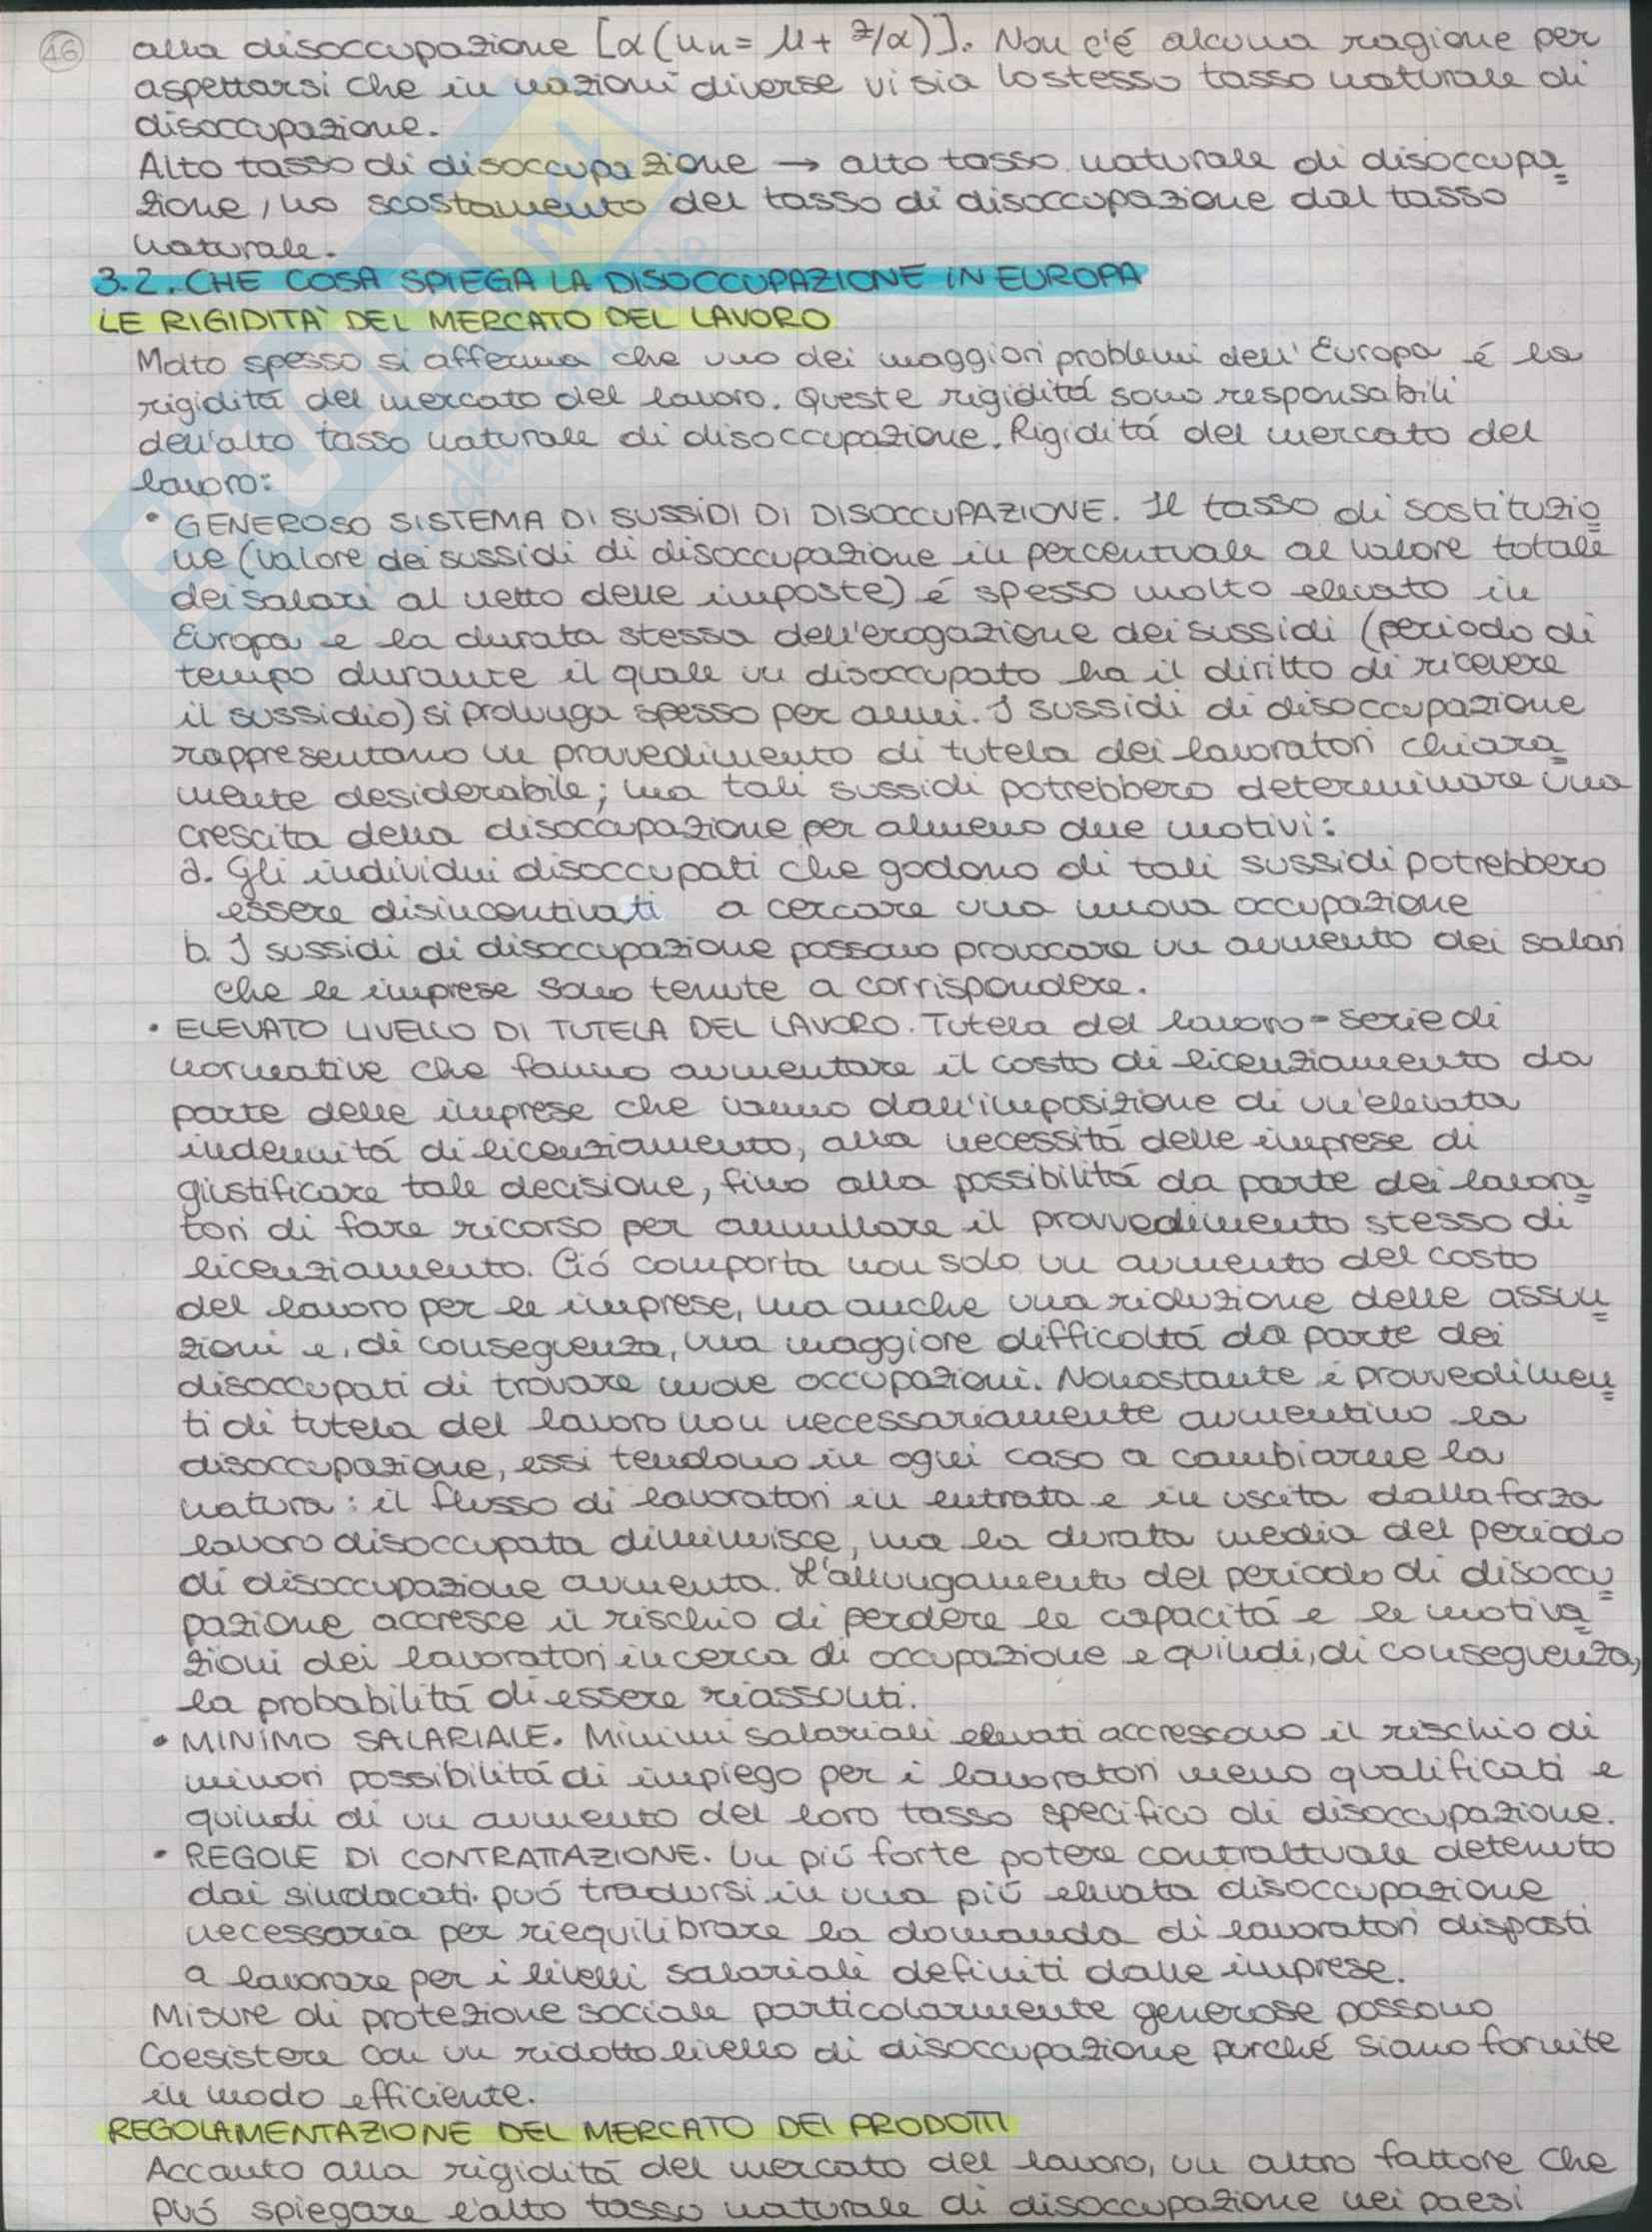 46
alla disoccupazione [α(un = μ + z/α)]. Non c'é alcuna ragione per
aspettarsi che in nazioni diverse vi sia lo stesso tasso naturale di
disoccupazione.
Alto tasso di disoccupazione → alto tasso naturale di disoccupa=
zione, no scostamento del tasso di disoccupazione dal tasso
naturale.
3.2. CHE COSA SPIEGA LA DISOCCUPAZIONE IN EUROPA
LE RIGIDITA' DEL MERCATO DEL LAVORO
Molto spesso si afferma che uno dei maggiori problemi dell'Europa é la
rigiditá del mercato del lavoro. Queste rigiditá sono responsabili
dell'alto tasso naturale di disoccupazione. Rigiditá del mercato del
lavoro:
• GENEROSO SISTEMA DI SUSSIDI DI DISOCCUPAZIONE. Il tasso di sostituzio=
ne (valore dei sussidi di disoccupazione in percentuale al valore totale
dei salari al netto delle imposte) é spesso molto elevato in
Europa e la durata stessa dell'erogazione dei sussidi (periodo di
tempo durante il quale un disoccupato ha il diritto di ricevere
il sussidio) si prolunga spesso per anni. I sussidi di disoccupazione
rappresentano un provvedimento di tutela dei lavoratori chiara=
mente desiderabile; ma tali sussidi potrebbero determinare una
crescita della disoccupazione per almeno due motivi:
a. Gli individui disoccupati che godono di tali sussidi potrebbero
essere disincentivati a cercare una nuova occupazione
b. I sussidi di disoccupazione possono provocare un aumento dei salari
che le imprese sono tenute a corrispondere.
• ELEVATO LIVELLO DI TUTELA DEL LAVORO. Tutela del lavoro = serie di
normative che fanno aumentare il costo di licenziamento da
parte delle imprese che vanno dall'imposizione di un'elevata
indennitá di licenziamento, alla necessitá delle imprese di
giustificare tale decisione, fino alla possibilitá da parte dei lavora=
tori di fare ricorso per annullare il provvedimento stesso di
licenziamento. Ció comporta non solo un aumento del costo
del lavoro per le imprese, ma anche una riduzione delle assun=
zioni e, di conseguenza, una maggiore difficoltá da parte dei
disoccupati di trovare nuove occupazioni. Nonostante i provvedimen=
ti di tutela del lavoro non necessariamente aumentino la
disoccupazione, essi tendono in ogni caso a cambiarne la
natura: il flusso di lavoratori in entrata e in uscita dalla forza
lavoro disoccupata diminuisce, ma la durata media del periodo
di disoccupazione aumenta. L'allungamento del periodo di disoccu=
pazione accresce il rischio di perdere le capacitá e le motiva=
zioni dei lavoratori in cerca di occupazione e quindi, di conseguenza,
la probabilitá di essere riassunti.
• MINIMO SALARIALE. Minimi salariali elevati accrescono il rischio di
minori possibilitá di impiego per i lavoratori meno qualificati e
quindi di un aumento del loro tasso specifico di disoccupazione.
• REGOLE DI CONTRATTAZIONE. Un piú forte potere contrattuale detenuto
dai sindacati puó tradursi in una piú elevata disoccupazione
necessaria per riequilibrare la domanda di lavoratori disposti
a lavorare per i livelli salariali definiti dalle imprese.
Misure di protezione sociale particolarmente generose possono
coesistere con un ridotto livello di disoccupazione purché siano fornite
in modo efficiente.
REGOLAMENTAZIONE DEL MERCATO DEI PRODOTTI
Accanto alla rigiditá del mercato del lavoro, un altro fattore che
puó spiegare l'alto tasso naturale di disoccupazione nei paesi